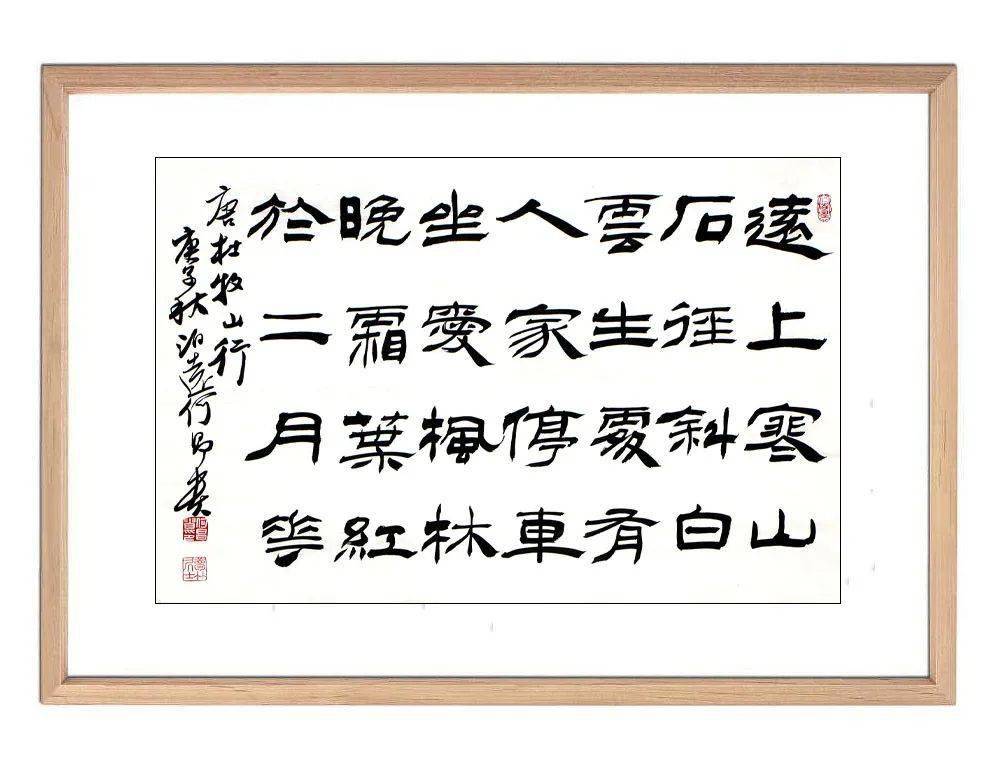 遠上寒山
石徑斜白
雲生處有
人家停車
坐愛楓林
晚霜葉紅
於二月花
唐杜牧山行
庚子秋